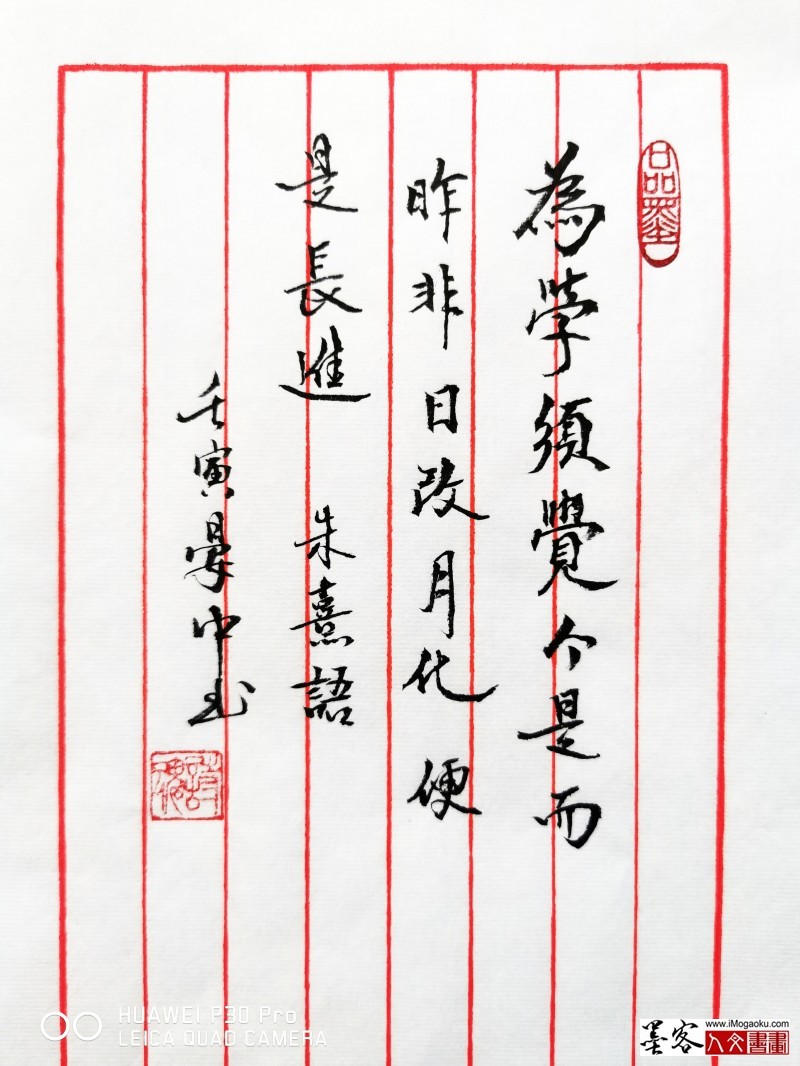 品墨
為學須覺今是而
昨非日改月化便
是長進 朱熹語
壬寅景中书
HUAWEI P30 Pro
LEICA QUAD CAMERA
墨客
www.iMogaoku.com
人文書畫